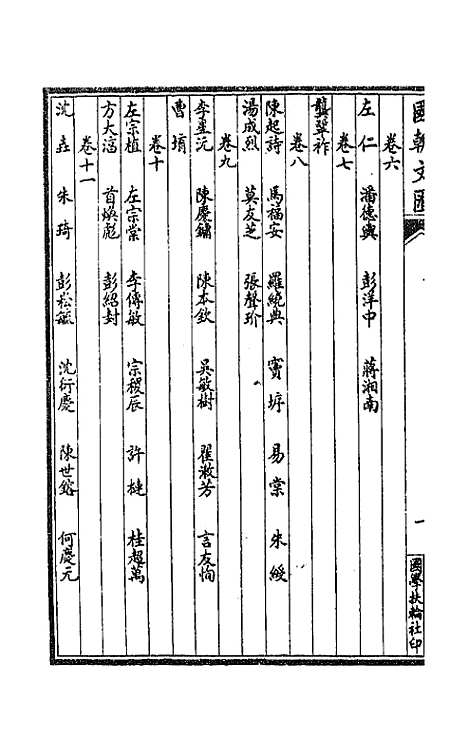 國朝文匯
一
國學扶輪社印
卷六
左仁 潘德輿 彭洋中 蔣湘南
卷七
龔鞏祚
卷八
陳起詩 馬福安 羅繞典 竇垿 易棠 朱綬
湯成烈 莫友芝 張聲玠
卷九
李星沅 陳慶鏞 陳本欽 吳敏樹 翟漱芳 言友恂
曹堉
卷十
左宗植 左宗棠 李傳敏 宗稷辰 許槤 桂超萬
方大淓 首煥彪 彭紹封
卷十一
沈垚 朱琦 彭崧毓 沈衍慶 陳世鎔 何慶元